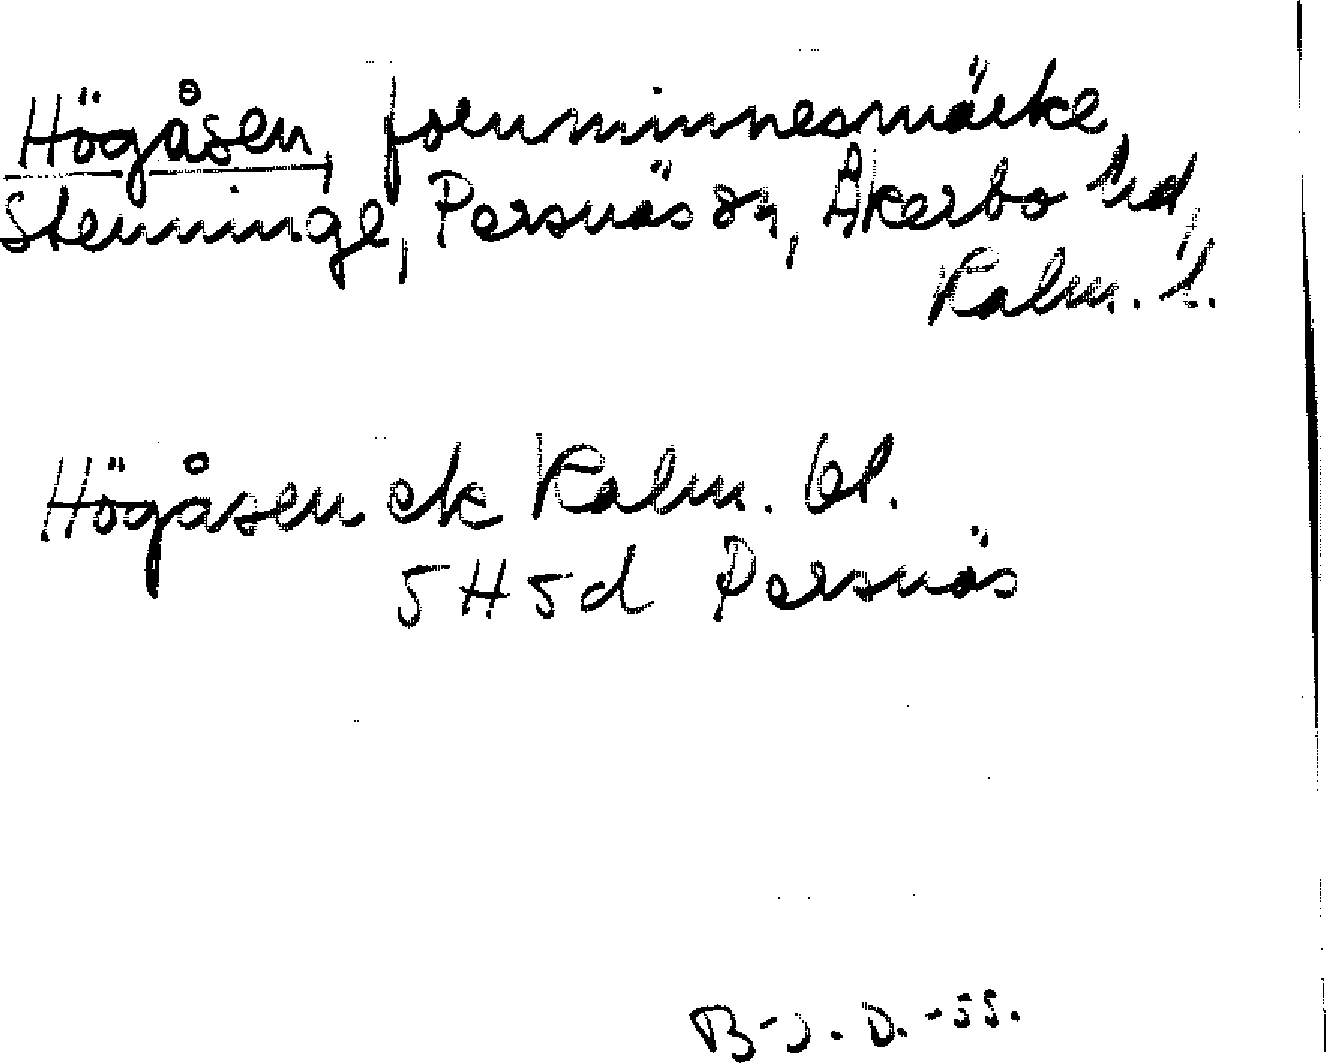 Högåsen, fornminnesmärke,
Stenninge, Persnäs sn, Åkerbo hd,
Kalm. l.
Högåsen ek Kalm. bl.
5H5d Persnäs
B-J. D. -55.